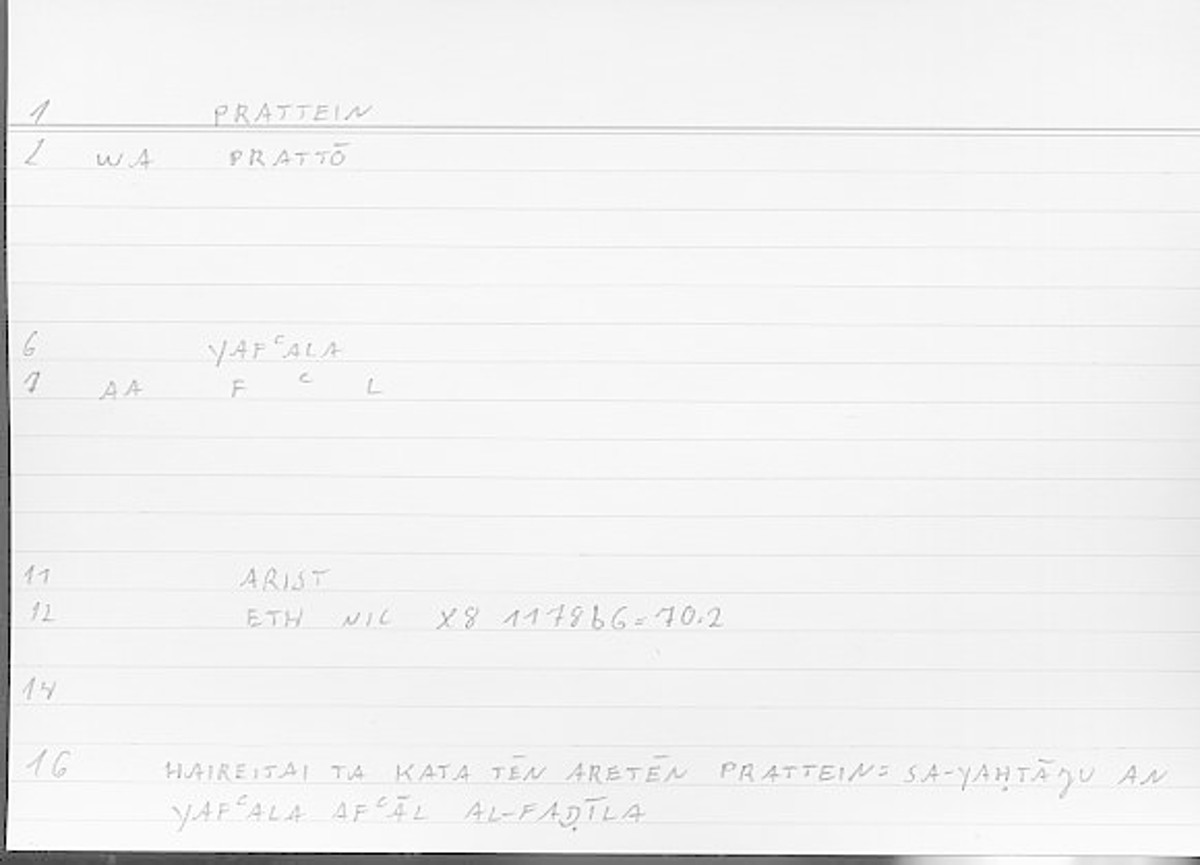 1 PRATTEIN
2 WA PRATTŌ
6 YAFᶜALA
7 AA F ᶜ L
11 ARIST
12 ETH NIC X8 1178b6=70.2
14
16 HAIREITAI TA KATA TĒN ARETĒN PRATTEIN= SA-YAḤTĀǦU AN
YAFᶜALA AFᶜĀL AL-FAḌĪLA